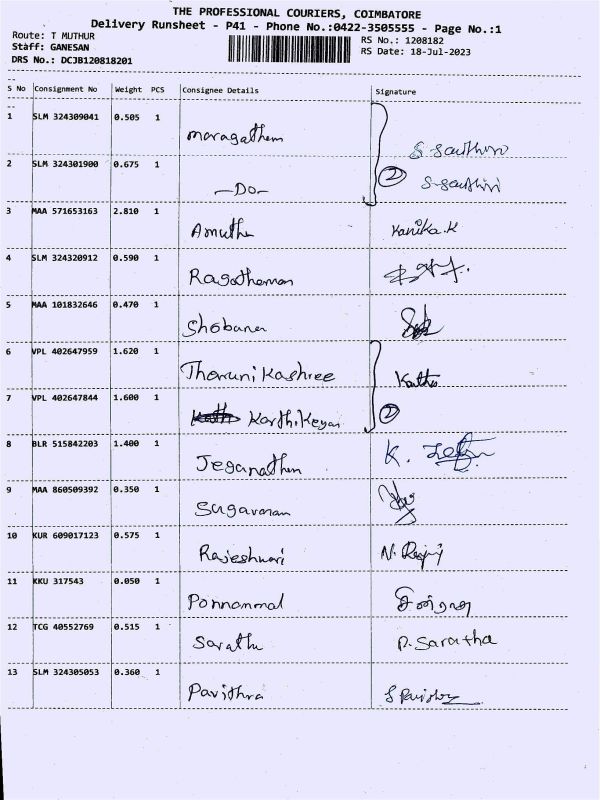 THE PROFESSIONAL COURIERS, COIMBATORE
Delivery Runsheet - P41 - Phone No.:0422-3505555 - Page No.:1
Route: T MUTHUR
RS No.: 1208182
Staff: GANESAN
RS Date: 18-Jul-2023
DRS No.: DCJB120818201
S No Consignment No Weight PCS Consignee Details Signature
1 SLM 324309041 0.505 1 Maragatham
2 SLM 324301900 0.675 1 —Do— 2
3 MAA 571653163 2.810 1 Amutha Kanika.K
4 SLM 324320912 0.590 1
5 MAA 101832646 0.470 1 Shobana
6 VPL 402647959 1.620 1 Tharuni Kashree
7 VPL 402647844 1.600 1 Karthikeyan 2
8 BLR 515842203 1.400 1 Jeganathan K.
9 MAA 860509392 0.350 1 Sugavanam
10 KUR 609017123 0.575 1 Rajeshwari N.
11 KKU 317543 0.050 1 Ponnammal
12 TCG 40552769 0.515 1 Saratha P. Saratha
13 SLM 324305053 0.360 1 Pavithra S